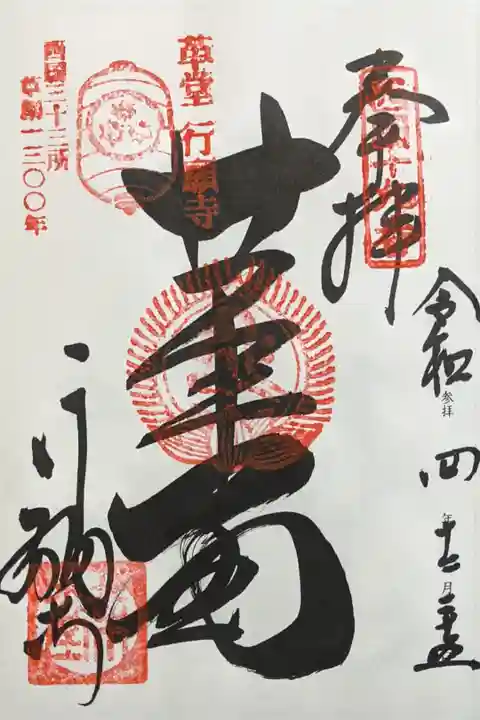 奉拝
令和四年十二月
参拝
革堂
革堂 行願寺
西国三十三所
草創一三〇〇年
行願寺